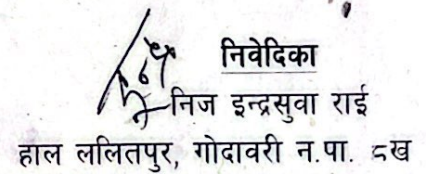 निवेदिका
निज इन्द्रसुवा राई
हाल ललितपुर, गोदावरी न.पा. ८ख